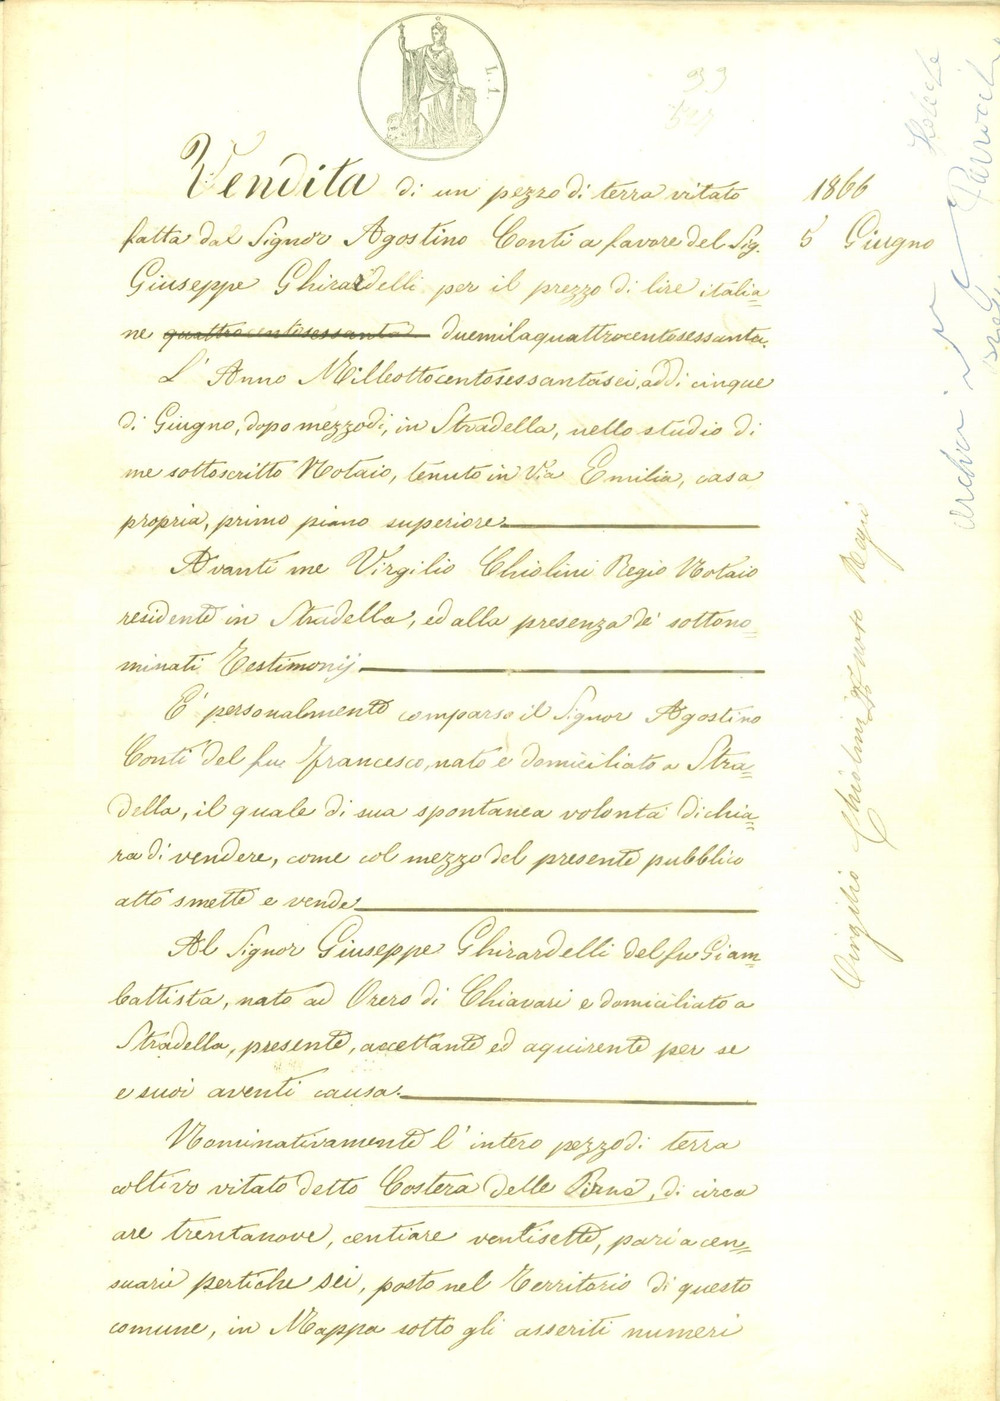 L. 1.
Vendita di un pezzo di terra vitato
fatta dal Signor Agostino Conti a favore del Sig.
Giuseppe Ghirardelli per il prezzo di lire italia=
ne quattrocentosessanta duemilaquattrocentosessanta.
1866
5 Giugno
L' Anno Milleottocentosessantasei, addi cinque
di Giugno, dopo mezzodi, in Stradella, nello studio di
me sottoscritto Notaio, tenuto in Via Emilia, casa
propria, primo piano superiore.
Avanti me Virgilio Chiolini Regio Notaio
residente in Stradella, ed alla presenza de' sottono=
minati Testimonij
E' personalmente comparso il Signor Agostino
Conti del fu Francesco, nato e domiciliato a Stra=
della, il quale di sua spontanea volontà dichia=
ra di vendere, come col mezzo del presente pubblico
atto smette e vende
Al Signor Giuseppe Ghirardelli del fu Giam=
battista, nato ad Orero di Chiavari e domiciliato a
Stradella, presente, accettante ed aquirente per se
e suoi aventi causa.
Nominativamente l' intero pezzo di terra
coltivo vitato detto Costera delle Pirne, di circa
are trentanove, centiare ventisette, pari a cen=
suarie pertiche sei, posto nel Territorio di questo
comune, in Mappa sotto gli asseriti numeri
Virgilio Chiolini Notaio Regio